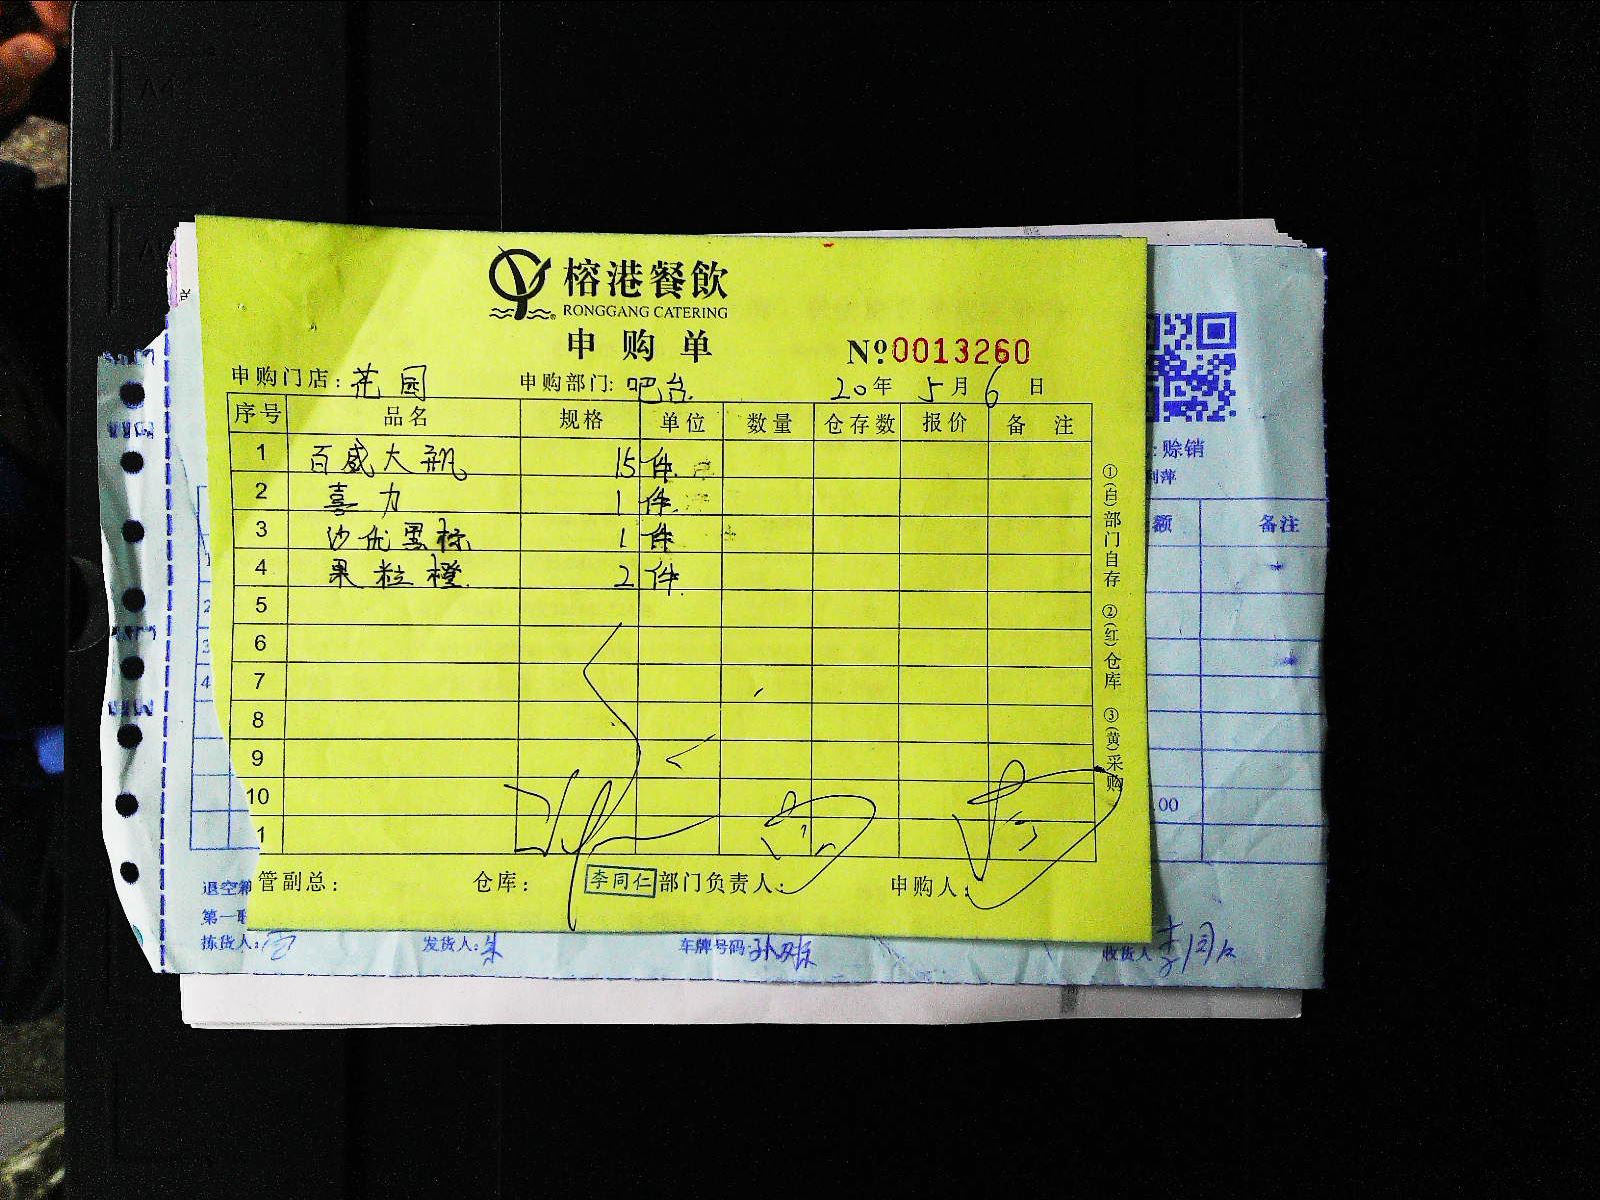 榕港餐飲
RONGGANG CATERING
申购单
№0013260
申购门店：花园 申购部门：吧台 20年5月6日
序号 品名 规格 单位 数量 仓存数 报价 备注
1 百威大瓶 15 件
2 喜力 1 件
3 沙优黑标 1 件
4 果粒橙 2 件
5
6
7
8
9
10
1
管副总： 仓库： 李同仁 部门负责人： 申购人：
①(白)部门自存 ②(红)仓库 ③(黄)采购
赊销
额 备注
2
3
4
.00
退空箱
第一联
拣货人： 发货人：朱 车牌号码： 收货人 李同仁